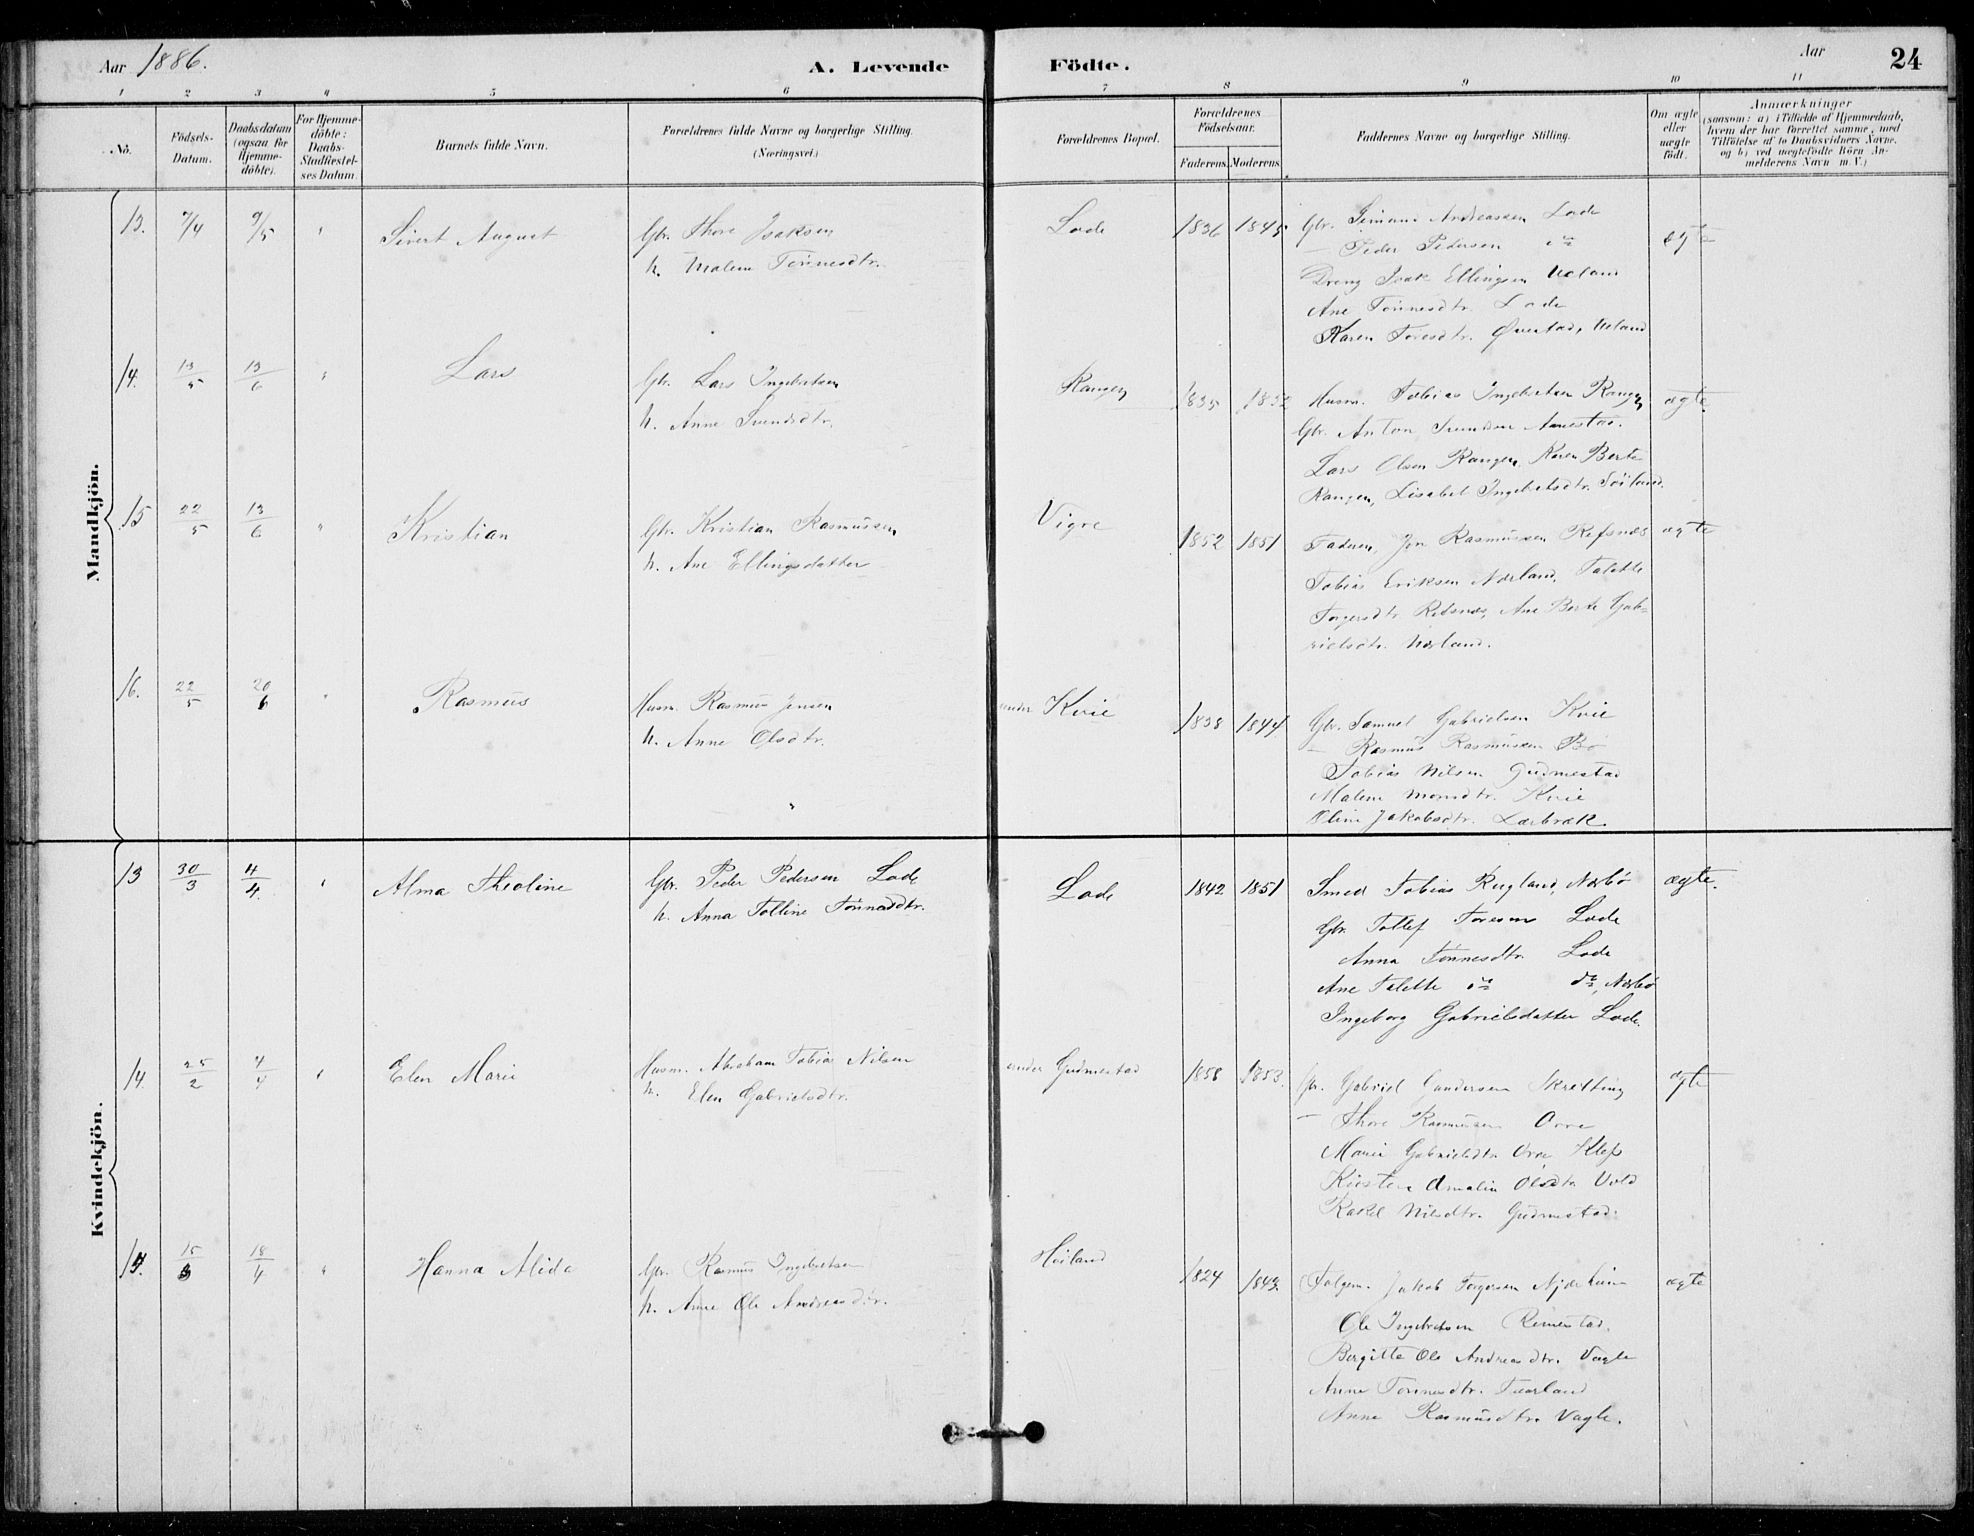 Aar 1886.
A. Levende Födte.
Aar
24
1 2 3 4 5 6 7 8 9 10 11
No.
Födsels-Datum.
Daabsdatum (ogsaa for Hjemme-döbte).
For Hjemme-döbte: Daabs-Stadfæstel-ses Datum.
Barnets fulde Navn.
Forældrenes fulde Navne og borgerlige Stilling.
(Næringsvei.)
Forældrenes Bopæl.
Forældrenes Födselsaar.
Faderens. Moderens.
Faddernes Navne og borgerlige Stilling.
Om ægte eller uægte födt.
Anmærkninger
(saasom: a) i Tilfælde af Hjemmedaab,
hvem der har forrettet samme, med
Tilföielse af to Daabsvidners Navne,
og b) ved uægtefödte Börn An-
melderens Navn m. V.)
Mandkjön.
13. 7/4 9/5 " Sivert August
Gbr. Thore Isaksen
h. Malene Tönnesdtr.
Lode 1836 1845
Gbr. Simon Andreassen Lode
— Peder Pedersen do
Dreng Isak Ellingsen Ueland
Ane Tönnesdtr. Lode
Karen Toresdtr. Ueland
ægte
14. 13/5 13/6 " Lars
Gbr. Lars Ingebretsen
h. Anne Svendsdtr.
Rangen 1835 1852
Husm. Tobias Ingebretsen Rangen
Gbr. Anton Svendsen
Lars Olsen Rangen, Karen Berte
Rangen, Lisabet Ingebretsdtr.
ægte.
15 22/5 13/6 " Kristian
Gbr. Kristian Rasmussen
h. Ane Ellingsdatter
Vigre 1852 1851
Faderen, Jon Rasmussen Refsnes
Tobias Eriksen Nærland, Talette
Torgersdtr. Refsnes, Ane Berte Gab-
rielsdtr. Nærland.
ægte
16. 22/5 20/6 " Rasmus
Husm. Rasmus Jensen
h. Anne Olsdtr.
under Kvie 1838 1844
Gbr. Samuel Gabrielsen Kvie
— Rasmus Rasmussen Bö
Tobias Nilsen Gudmestad
Malene Monsdtr. Kvie
Oline Jakobsdtr.
Kvindekjön.
13 30/3 4/4. " Alma Theoline
Gbr. Peder Pedersen Lode
h. Anna Tolline Tönnesdtr.
Lode 1842 1851
Smed Tobias Rugland Nærbö
Gbr. Tollef Toresen Lode
Anna Tönnesdtr. Lode
Ane Talette do do, Nærbö
Ingeborg Gabrielsdatter Lode.
ægte.
14. 25/2 4/4 " Elen Marie
Husm. Abraham Tobias Nilsen
h. Elen Gabrielsdtr.
under Gudmestad 1858 1853.
Gbr. Gabriel Gundersen Skretting
— Thore Rasmussen Orre
Marie Gabrielsdtr. Orre Klep
Kirsten Amalia Olsdtr. Vold
Rakel Nilsdtr. Gudmestad.
ægte
15. 15/3 18/4 " Hanna Alida
Gbr. Rasmus Ingebretsen
h. Anne Ole Andreasdtr.
Höiland 1824 1843.
Jakob Torgersen Njærheim
Ole Ingebretsen Rimestad.
Bergitte Ole Andreasdtr. Vagle
Anne Tönnesdtr. Tuerland
Anne Rasmusdtr. Vagle.
ægte